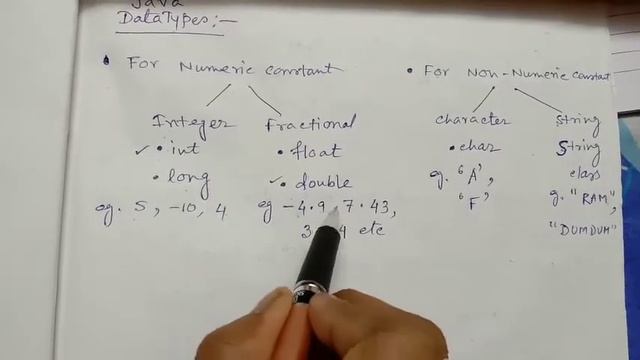 Java
DataTypes:-
• For Numeric constant
Integer Fractional
• int • float
• long • double
eg. 5, -10, 4 eg -4.9, 7.43,
3 4 etc
• For Non-Numeric constant
character string
• char String
class
eg. 'A', g. "RAM",
'F' "DUMDUM"